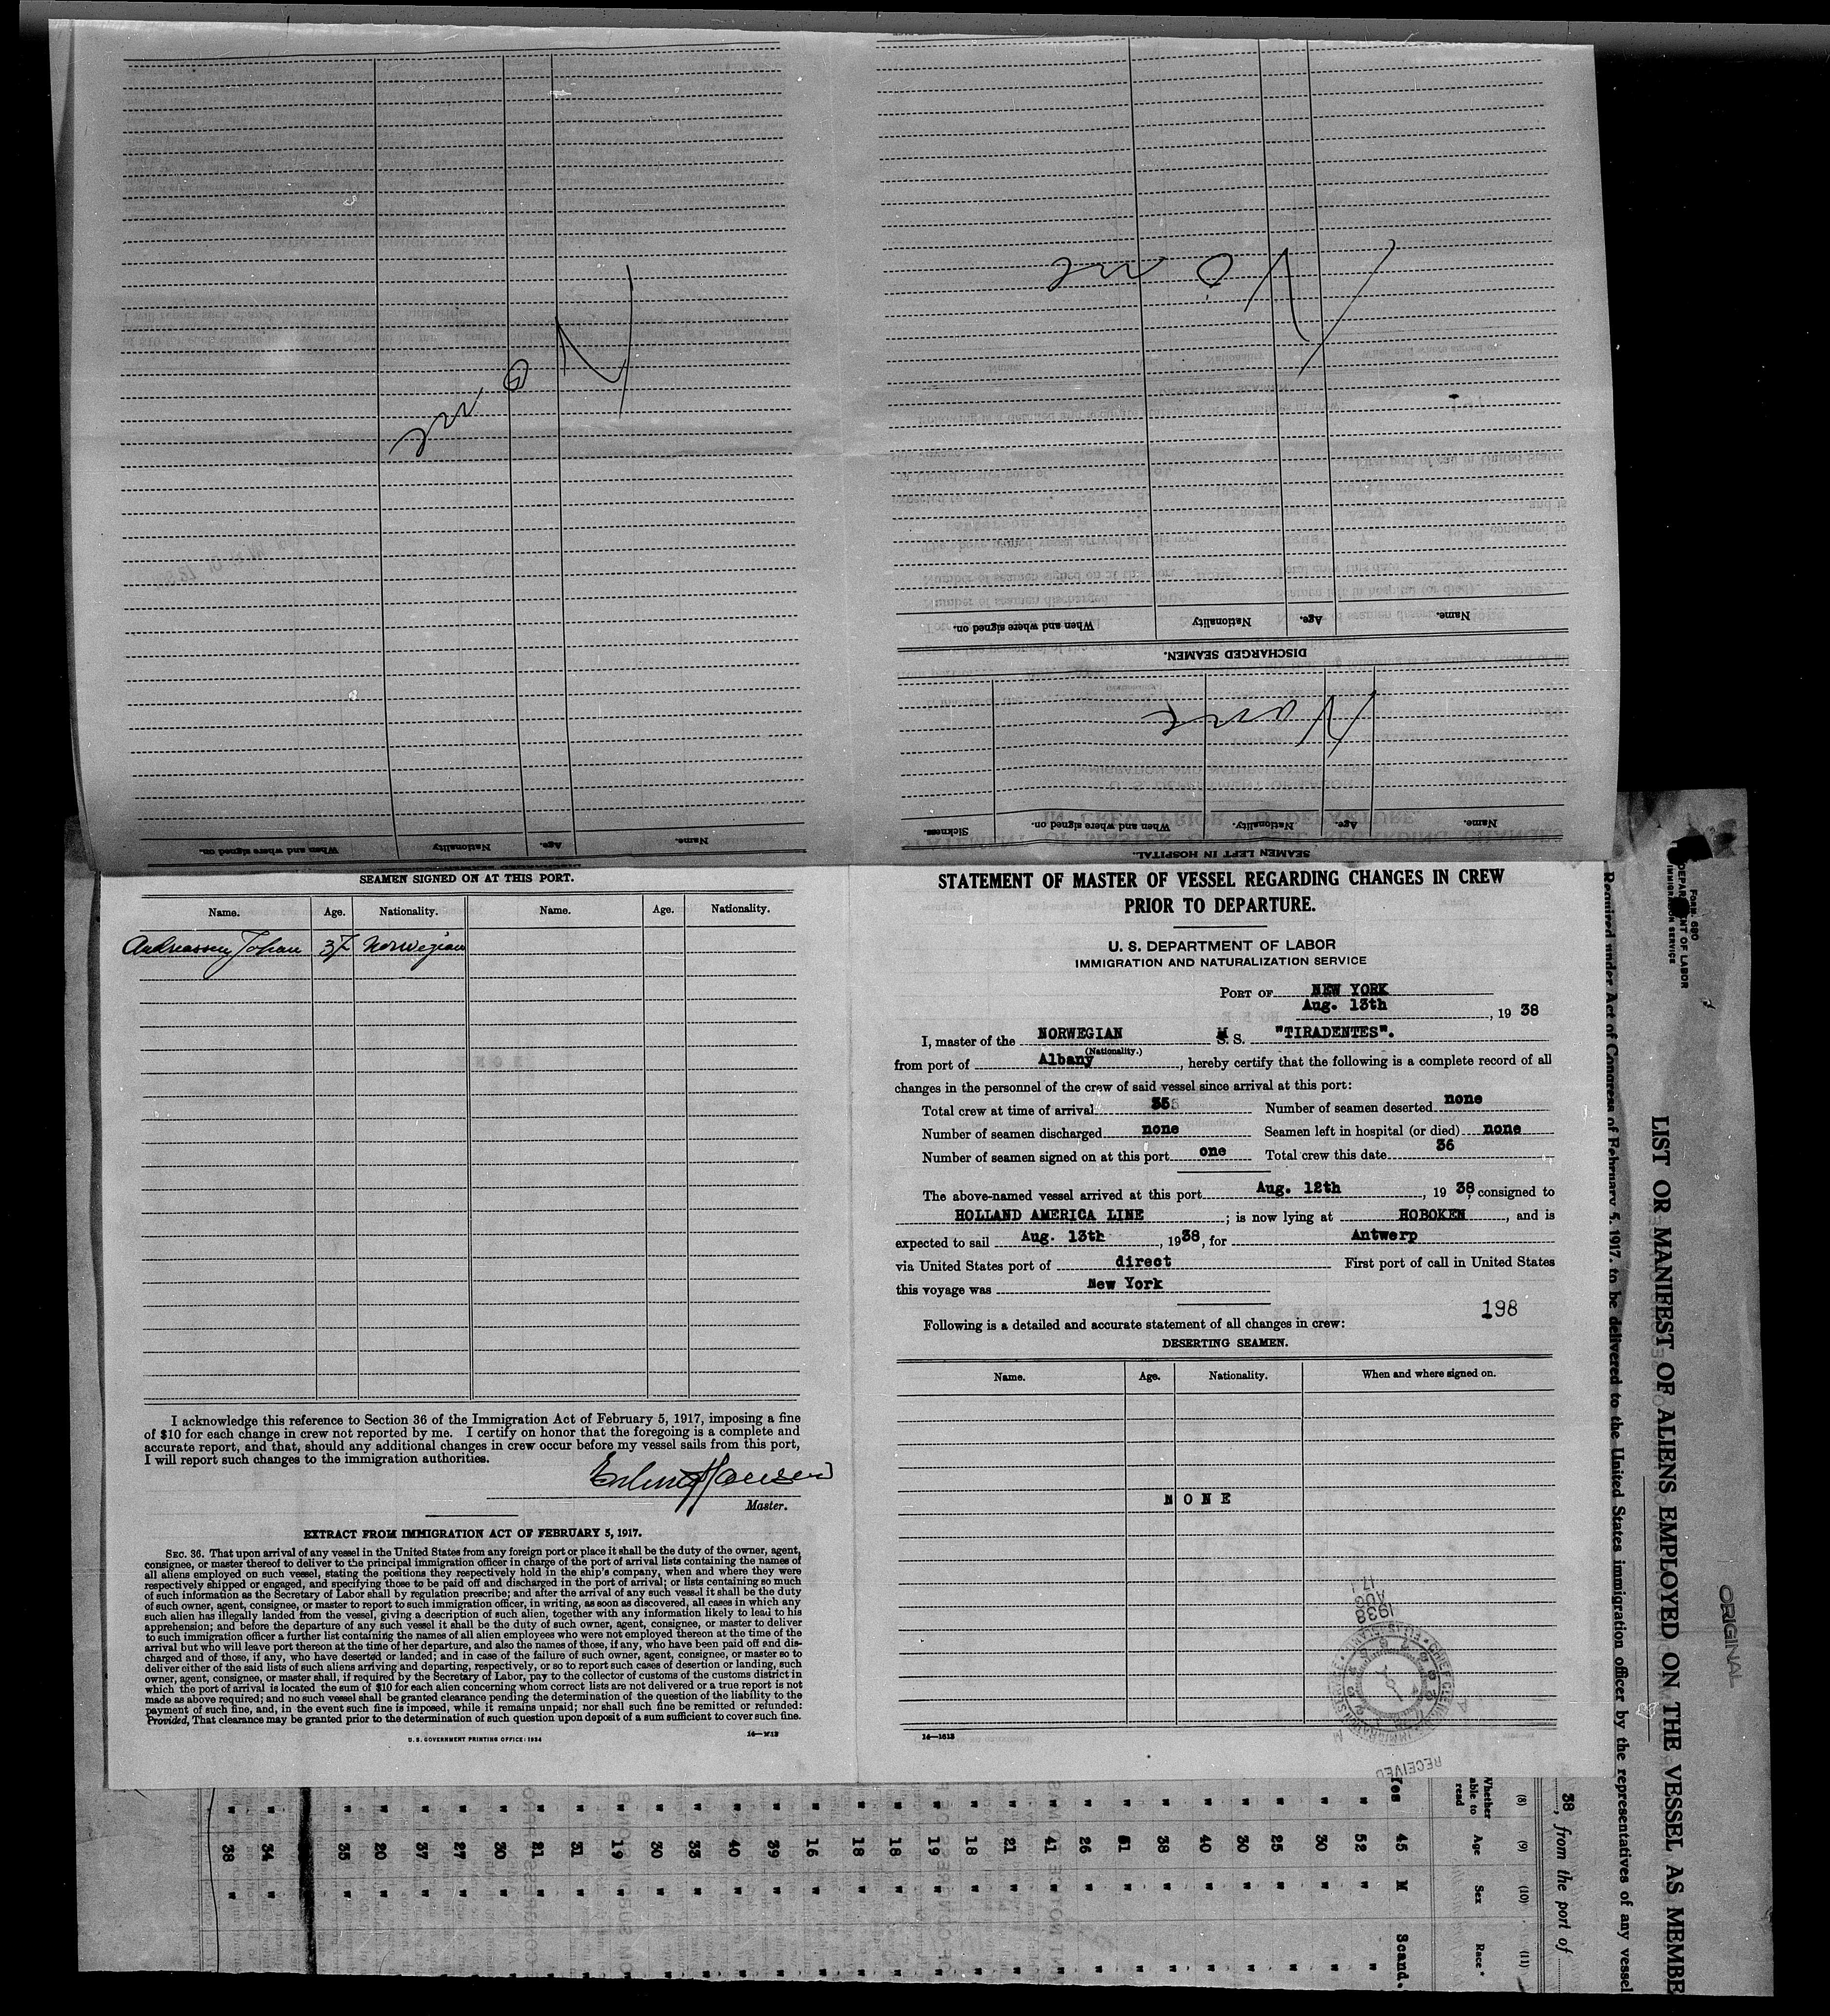 When and where signed on. Nationality Age. Name.
None
When and where signed on. Nationality Age. Name.
DISCHARGED SEAMEN.
None
None
Sickness. When and where signed on. Nationality. Age. Name.
SEAMEN LEFT IN HOSPITAL.
SEAMEN SIGNED ON AT THIS PORT.
Name. Age. Nationality. Name. Age. Nationality.
Andreassen, Johan 37 Norwegian
I acknowledge this reference to Section 36 of the Immigration Act of February 5, 1917, imposing a fine
of $10 for each change in crew not reported by me. I certify on honor that the foregoing is a complete and
accurate report, and that, should any additional changes in crew occur before my vessel sails from this port,
I will report such changes to the immigration authorities.
Master.
EXTRACT FROM IMMIGRATION ACT OF FEBRUARY 5, 1917.
SEC. 36. That upon arrival of any vessel in the United States from any foreign port or place it shall be the duty of the owner, agent,
consignee, or master thereof to deliver to the principal immigration officer in charge of the port of arrival lists containing the names of
all aliens employed on such vessel, stating the positions they respectively hold in the ship's company, when and where they were
respectively shipped or engaged, and specifying those to be paid off and discharged in the port of arrival; or lists containing so much
of such information as the Secretary of Labor shall by regulation prescribe; and after the arrival of any such vessel it shall be the duty
of such owner, agent, consignee, or master to report to such immigration officer, in writing, as soon as discovered, all cases in which any
such alien has illegally landed from the vessel, giving a description of such alien, together with any information likely to lead to his
apprehension; and before the departure of any such vessel it shall be the duty of such owner, agent, consignee, or master to deliver
to such immigration officer a further list containing the names of all alien employees who were not employed thereon at the time of the
arrival but who will leave port thereon at the time of her departure, and also the names of those, if any, who have been paid off and dis-
charged and of those, if any, who have deserted or landed; and in case of the failure of such owner, agent, consignee, or master so to
deliver either of the said lists of such aliens arriving and departing, respectively, or so to report such cases of desertion or landing, such
owner, agent, consignee, or master shall, if required by the Secretary of Labor, pay to the collector of customs of the customs district in
which the port of arrival is located the sum of $10 for each alien concerning whom correct lists are not delivered or a true report is not
made as above required; and no such vessel shall be granted clearance pending the determination of the question of the liability to the
payment of such fine, and, in the event such fine is imposed, while it remains unpaid; nor shall such fine be remitted or refunded:
Provided, That clearance may be granted prior to the determination of such question upon deposit of a sum sufficient to cover such fine.
U.S. GOVERNMENT PRINTING OFFICE: 1934
STATEMENT OF MASTER OF VESSEL REGARDING CHANGES IN CREW
PRIOR TO DEPARTURE.
U. S. DEPARTMENT OF LABOR
IMMIGRATION AND NATURALIZATION SERVICE
PORT OF NEW YORK
Aug. 13th, 1938
I, master of the NORWEGIAN M S. "TIRADENTES".
(Nationality.)
from port of Albany, hereby certify that the following is a complete record of all
changes in the personnel of the crew of said vessel since arrival at this port:
Total crew at time of arrival 35 Number of seamen deserted none
Number of seamen discharged none Seamen left in hospital (or died) none
Number of seamen signed on at this port one Total crew this date 36
The above-named vessel arrived at this port Aug. 12th, 1938, consigned to
HOLLAND AMERICA LINE; is now lying at HOBOKEN, and is
expected to sail Aug. 13th, 1938, for Antwerp
via United States port of direct First port of call in United States
this voyage was New York
198
Following is a detailed and accurate statement of all changes in crew:
DESERTING SEAMEN.
Name. Age. Nationality. When and where signed on.
NONE
1938
AUG
17
RECEIVED
ORIGINAL
LIST OR MANIFEST OF ALIENS EMPLOYED ON THE VESSEL AS MEMBE
Required under Act of Congress of February 5, 1917, to be delivered to the United States immigration officer by the representatives of any vessel
38, from the port of
(8) (9) (10) (11)
Whether able to read Age Sex Race *
Yes 45 M Scand.
" 52 " "
" 30 " "
" 25 " "
" 30 " "
" 40 " "
" 38 " "
" 51 " "
" 26 " "
" 41 " "
" 21 " "
" 18 " "
" 19 " "
" 18 " "
" 18 " "
" 16 " "
" 39 " "
" 40 " "
" 33 " "
" 30 " "
" 19 " "
" 31 " "
" 21 " "
" 30 " "
" 27 " "
" 37 " "
" 20 " "
" 35 " "
" 34 " "
" 38 " "